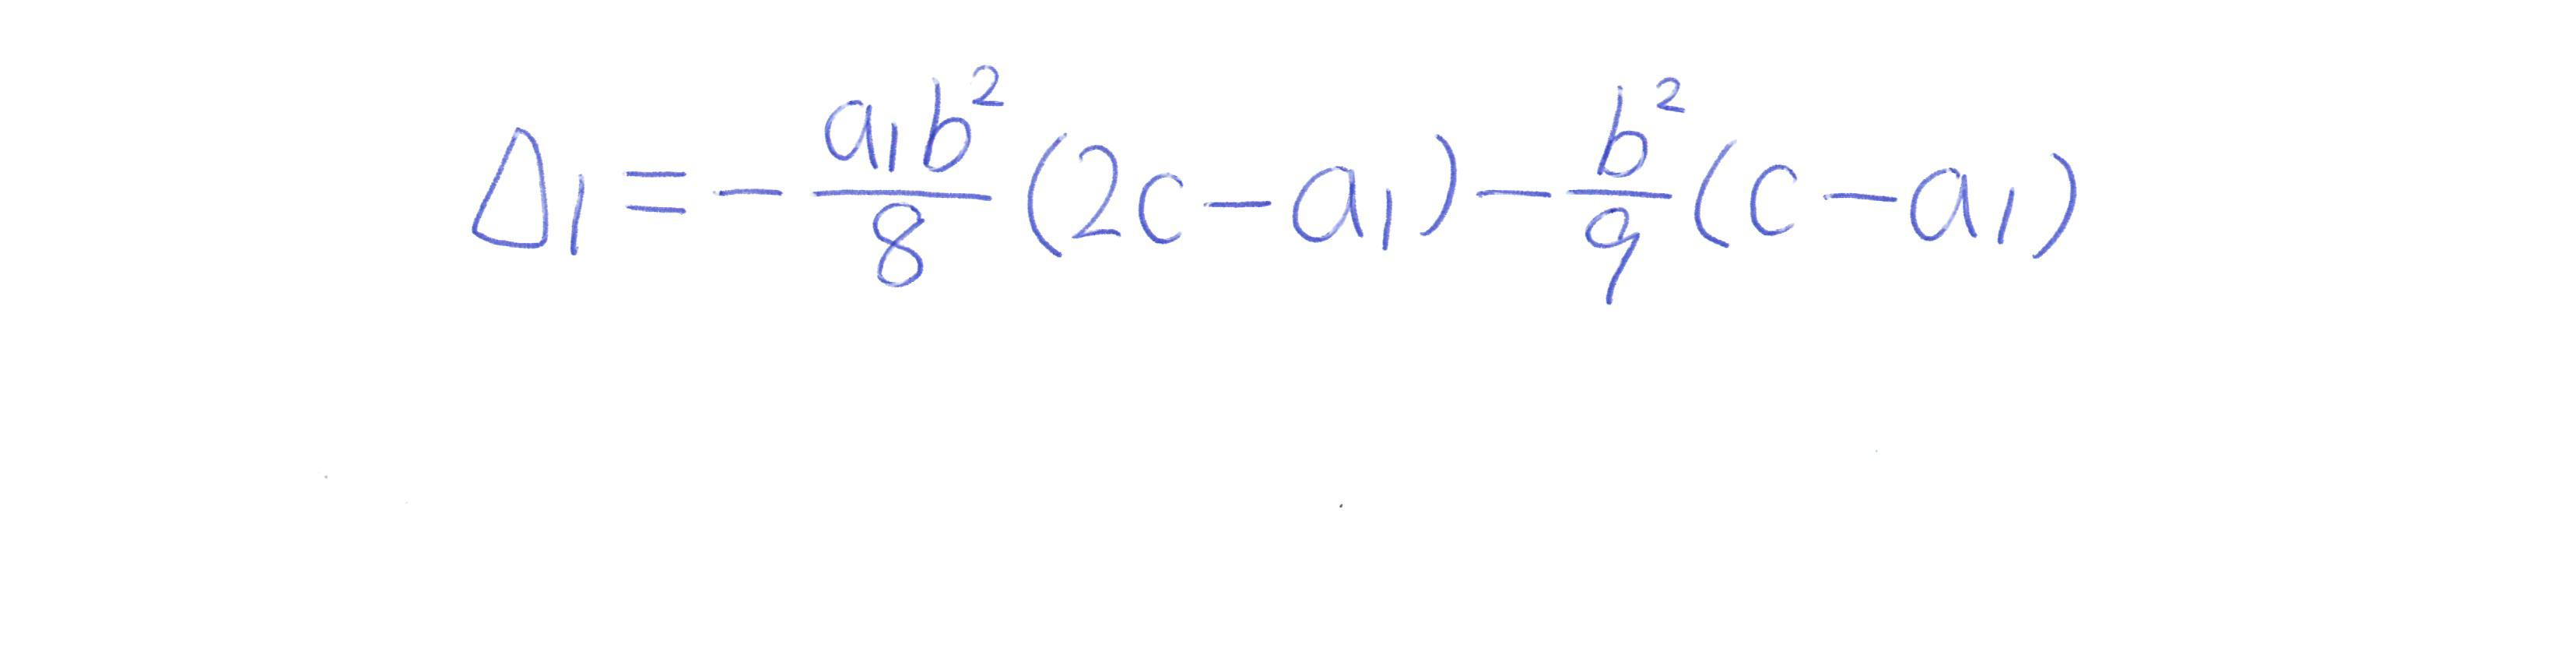 Δ₁ = - \frac{a₁b²}{8} (2c - a₁) - \frac{b²}{9} (c - a₁)